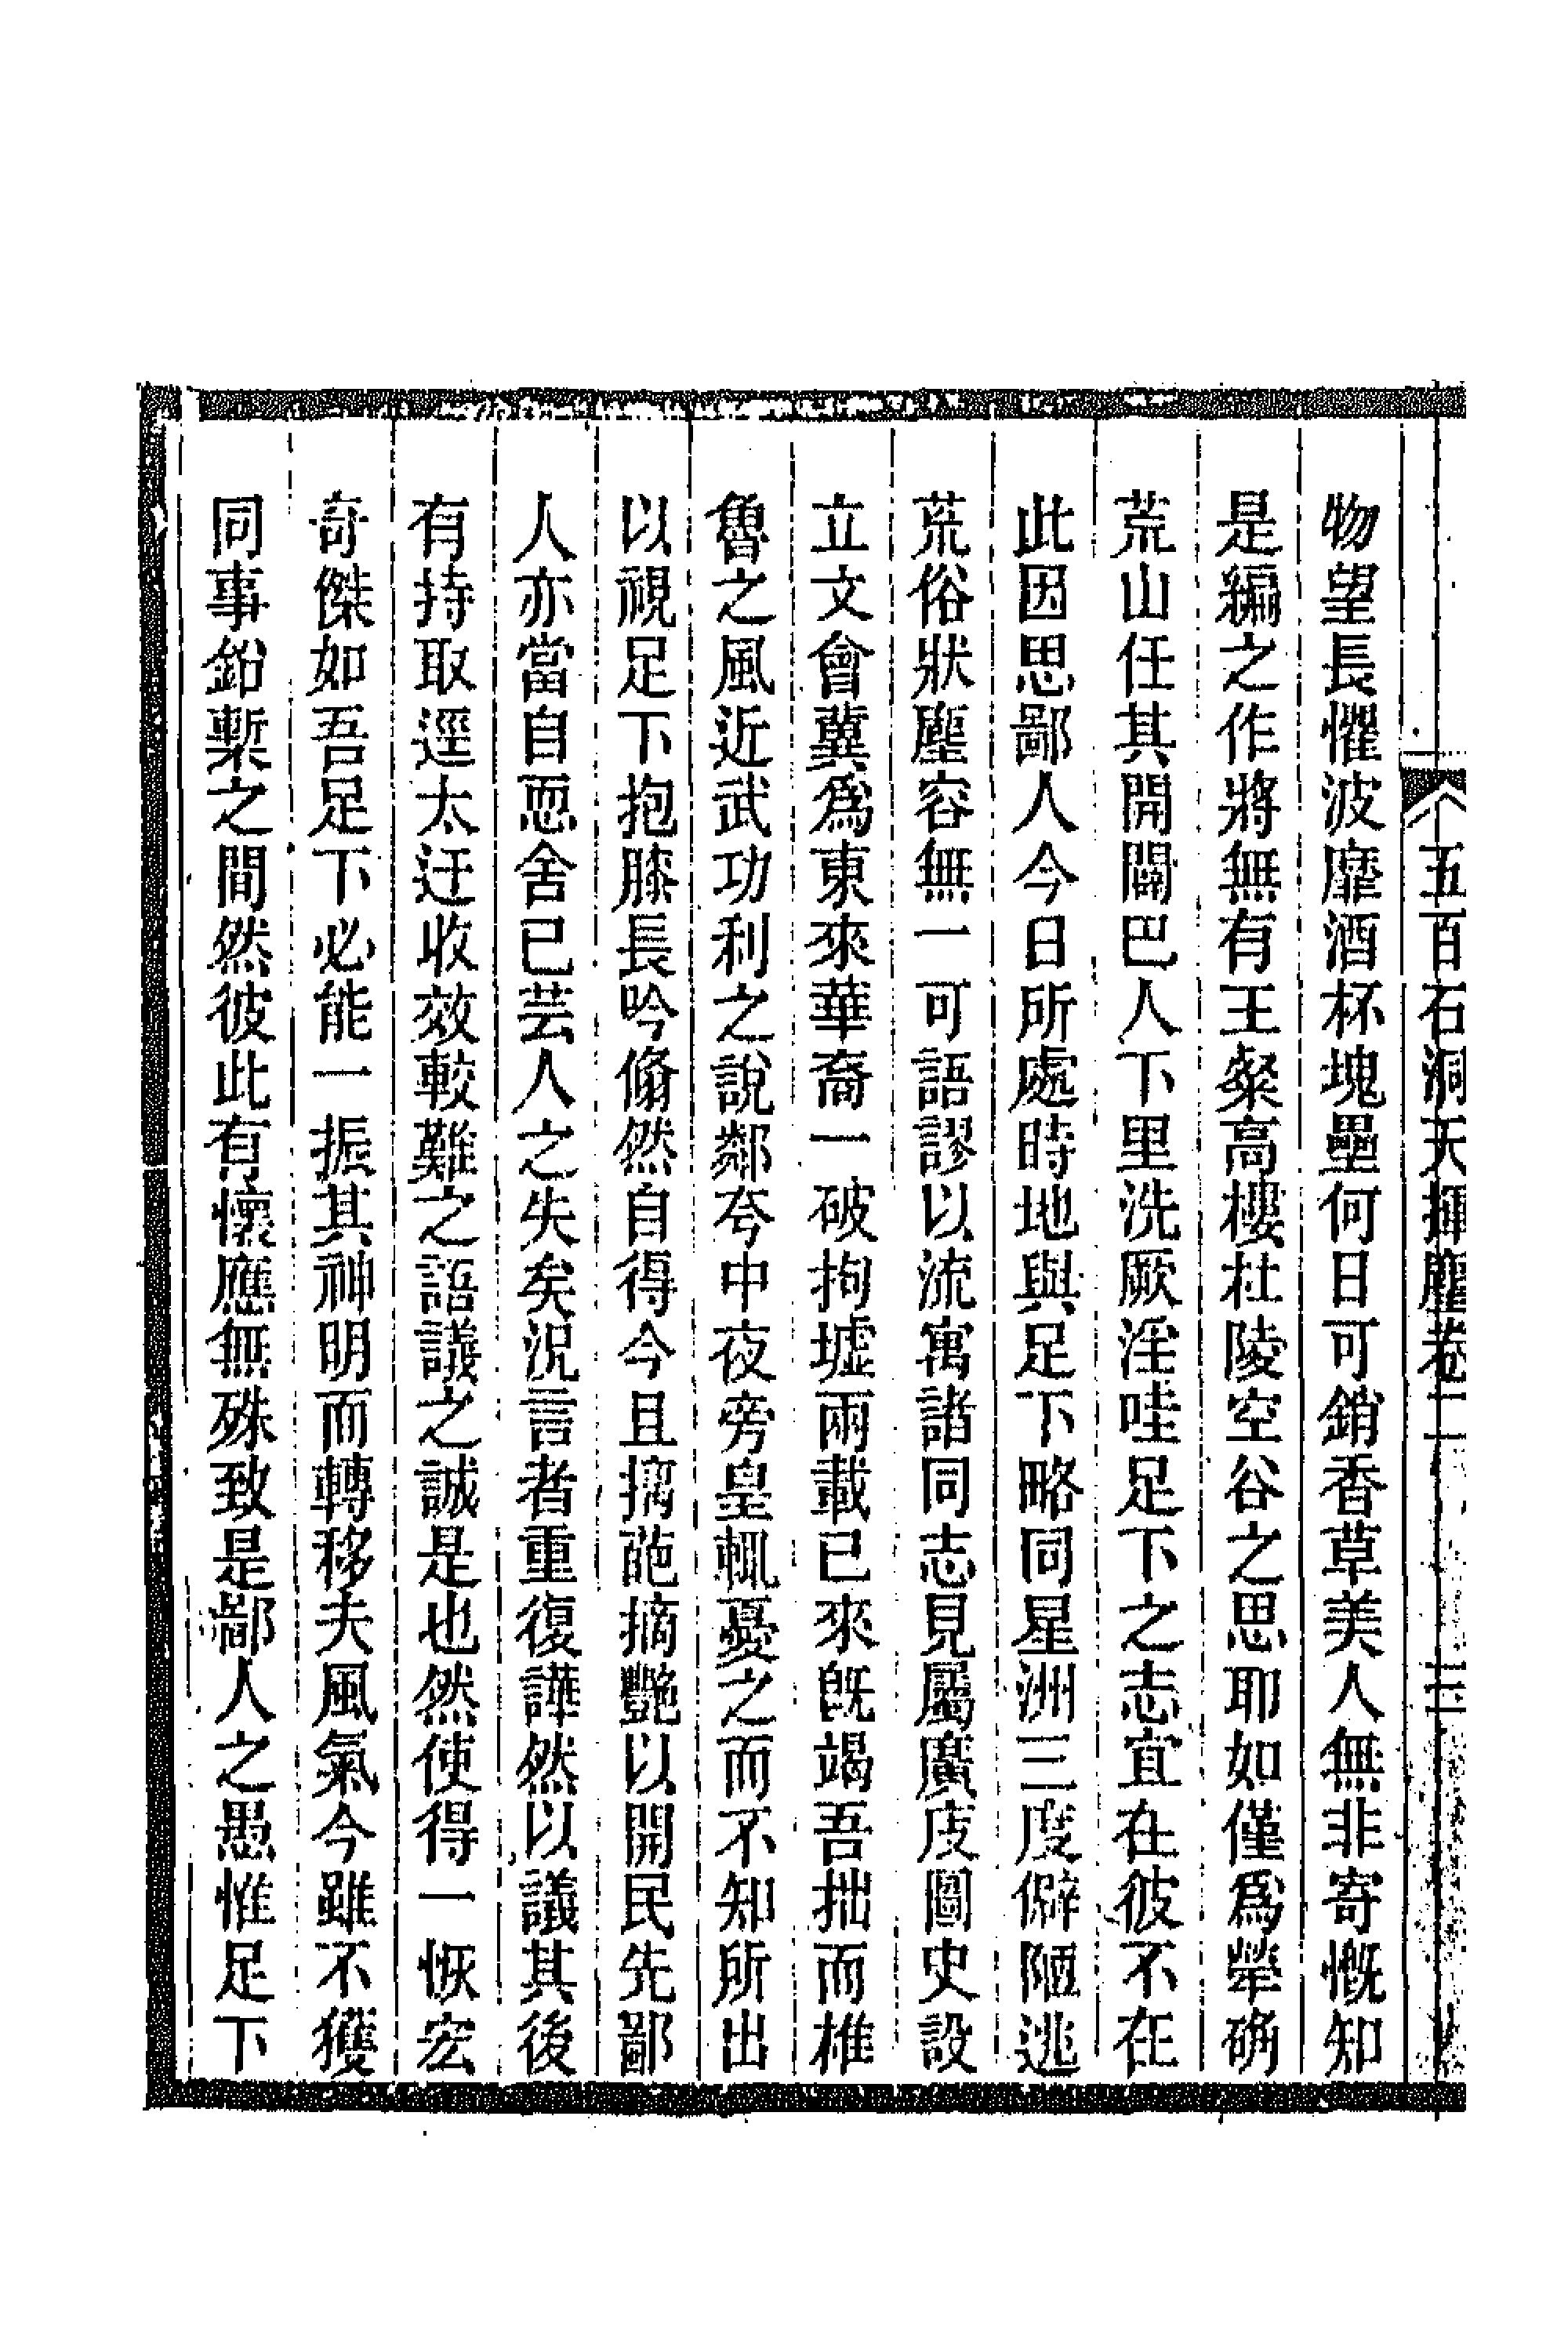 五百石洞天揮麈卷二 三
物望長懼波靡酒杯塊壘何日可銷香草美人無非寄慨知
是編之作將無有王粲高樓杜陵空谷之思耶如僅爲犖确
荒山任其開闢巴人下里洗厥淫哇足下之志宜在彼不在
此因思鄙人今日所處時地與足下略同星洲三度僻陋逃
荒俗狀塵容無一可語謬以流寓諸同志見屬廣庋圖史設
立文會冀爲東來華裔一破拘墟兩載已來旣竭吾拙而椎
魯之風近武功利之說鄰夸中夜旁皇輒憂之而不知所出
以視足下抱膝長吟翛然自得今且摛葩摘艷以開民先鄙
人亦當自恧舍已芸人之失矣況言者重復譁然以議其後
有持取逕太迂收效較難之語議之誠是也然使得一恢宏
奇傑如吾足下必能一振其神明而轉移夫風氣今雖不獲
同事鉛槧之間然彼此有懷應無殊致是鄙人之愚惟足下